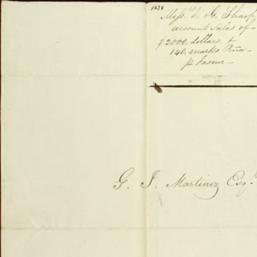 1838
Messrs. J. & G. Sharp
account sales of
$2000. dollars &
140. marks
p. Saxon
G. J. Martinez Esqr.